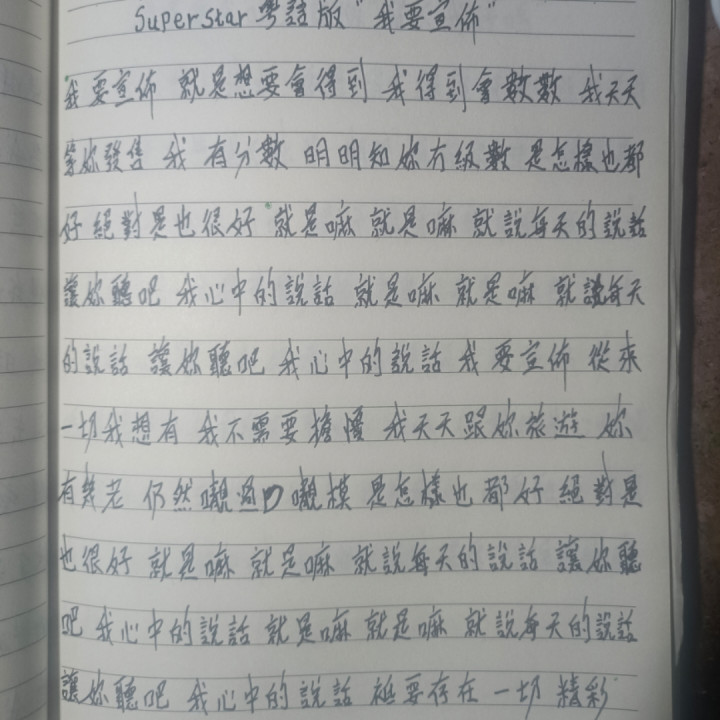 Superstar 粵語版 "我要宣佈"
我要宣佈 就是想要會得到 我得到會數數 我天天
等妳發售 我 有分數 明明知妳冇級數 是怎樣也都
好 絕對是也很好 就是嘛 就是嘛 就說每天的說話
讓妳聽吧 我心中的說話 就是嘛 就是嘛 就說每天
的說話 讓妳聽吧 我心中的說話 我 要宣佈 從來
一切我想有 我不需要擔憂 我天天跟妳旅遊 妳
有幾老 仍然嚫 嚫模 是怎樣也都好 絕對是
也很好 就是嘛 就是嘛 就說每天的說話 讓妳聽
吧 我心中的說話 就是嘛 就是嘛 就說每天的說話
讓妳聽吧 我心中的說話 要存在一切 精彩